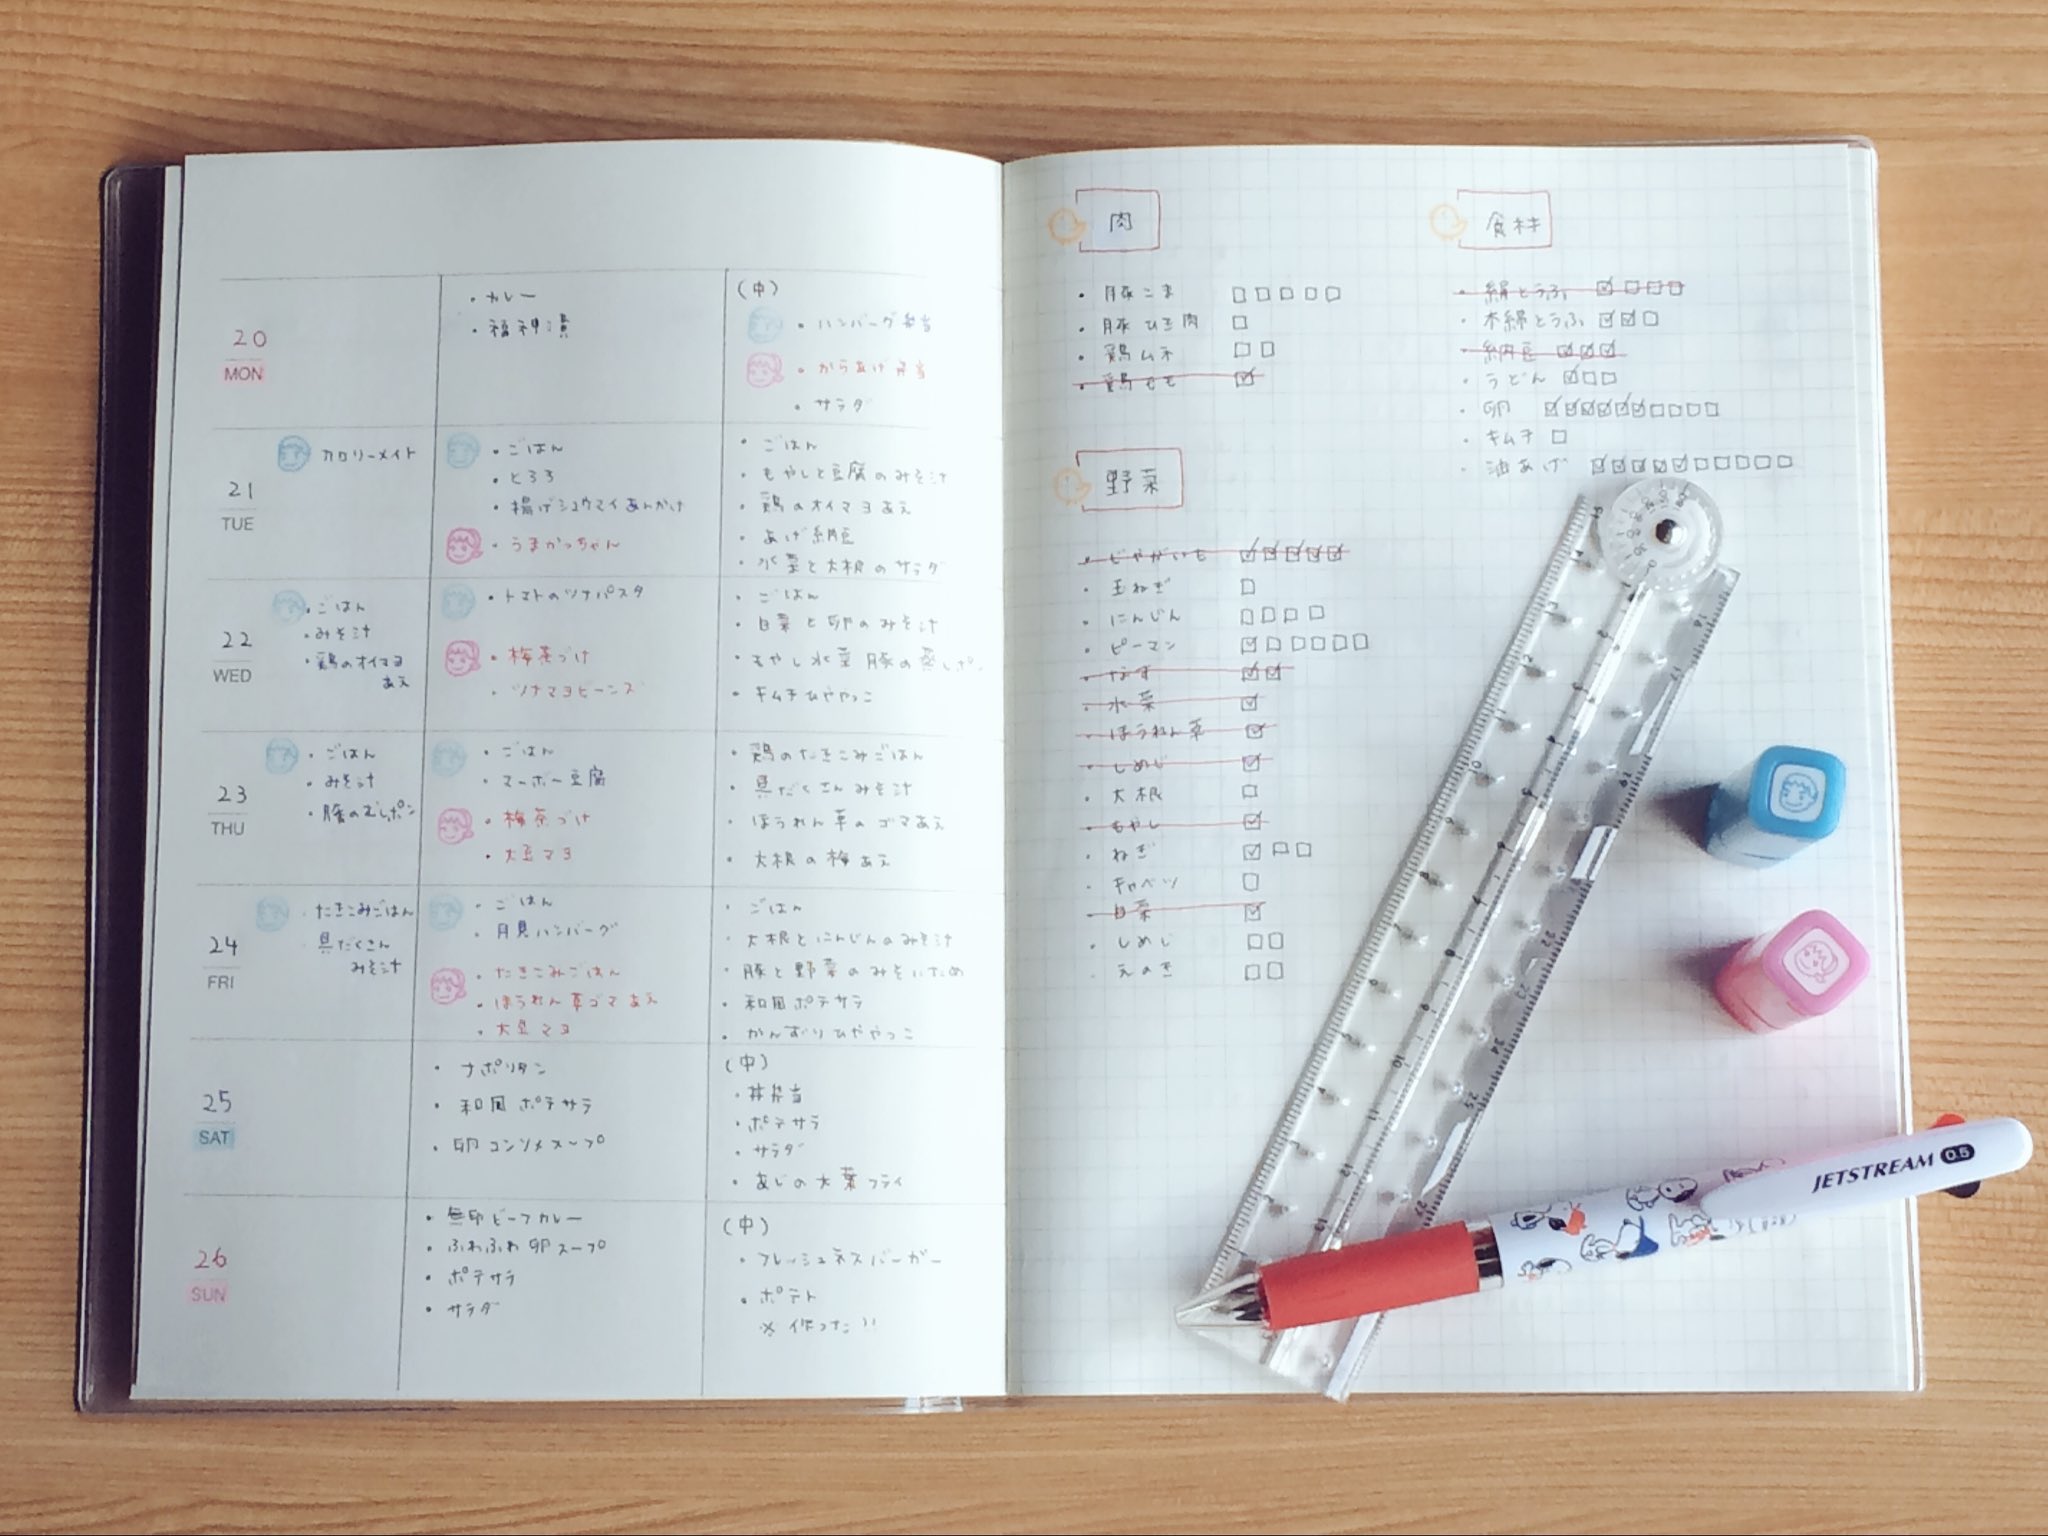 20
MON
・カレー
・福神漬
(中)
・ハンバーグ弁当
・からあげ弁当
・サラダ
21
TUE
カロリーメイト
・ごはん
・とろろ
・揚げシュウマイあんかけ
・うまかっちゃん
・ごはん
・もやしと豆腐のみそ汁
・鶏のオイマヨあえ
・あげ納豆
・水菜と大根のサラダ
22
WED
・ごはん
・みそ汁
・鶏のオイマヨ
あえ
・トマトのツナパスタ
・梅茶づけ
・ツナマヨビーンズ
・ごはん
・白菜と卵のみそ汁
・もやし水菜豚の蒸しポン
・キムチひややっこ
23
THU
・ごはん
・みそ汁
・豚のむしポン
・ごはん
・マーボー豆腐
・梅茶づけ
・大豆マヨ
・鶏のたきこみごはん
・具だくさんみそ汁
・ほうれん草のゴマあえ
・大根の梅あえ
24
FRI
・たきこみごはん
・具だくさん
みそ汁
・ごはん
・月見ハンバーグ
・たきこみごはん
・ほうれん草ゴマあえ
・大豆マヨ
・ごはん
・大根とにんじんのみそ汁
・豚と野菜のみそいため
・和風ポテサラ
・かんずりひややっこ
25
SAT
・ナポリタン
・和風ポテサラ
・卵コンソメスープ
(中)
・丼弁当
・ポテサラ
・サラダ
・あじの大葉フライ
26
SUN
・無印ビーフカレー
・ふわふわ卵スープ
・ポテサラ
・サラダ
(中)
・フレッシュネスバーガー
・ポテト
※作った!!
肉
・豚こま □□□□□
・豚ひき肉 □
・鶏ムネ □□
・鶏もも ☑
野菜
・じゃがいも ☑☑☑☑☑
・玉ねぎ □
・にんじん □□□□
・ピーマン ☑□□□□□
・なす ☑☑
・水菜 ☑
・ほうれん草 ☑
・しめじ ☑
・大根 □
・もやし ☑
・ねぎ ☑□□
・キャベツ □
・白菜 ☑
・しめじ □□
・えのき □□
食材
・絹とうふ ☑□□□
・木綿とうふ ☑☑□
・納豆 ☑☑☑
・うどん ☑□□
・卵 ☑☑☑☑☑☑□□□□
・キムチ □
・油あげ ☑☑☑☑☑□□□□□
JETSTREAM 0.5